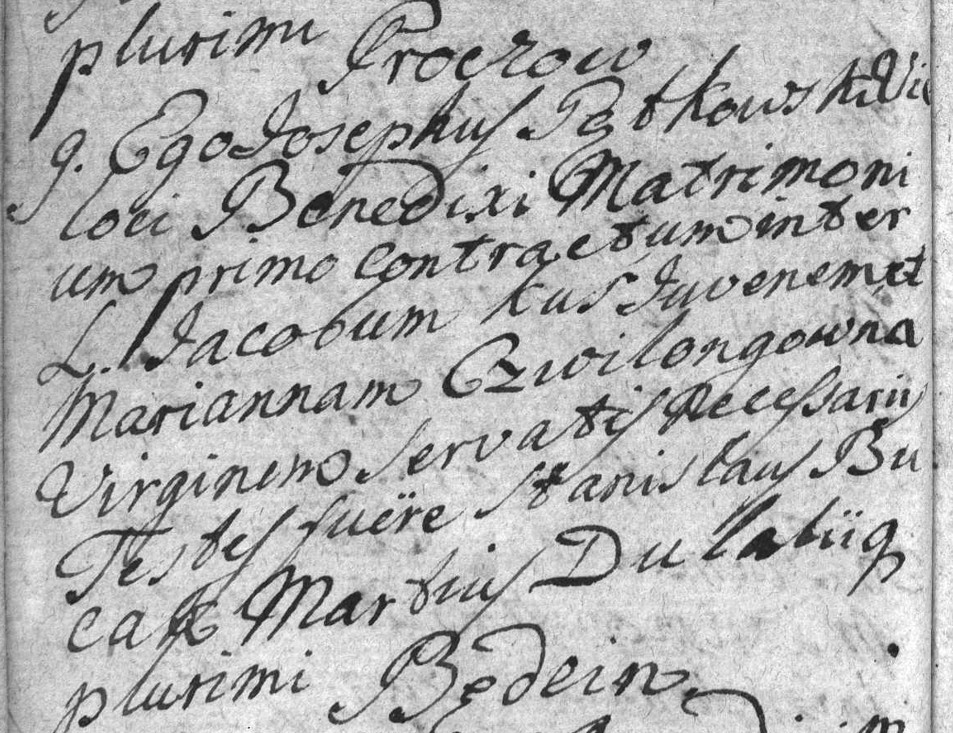 plurimi Proczow
9. Ego Josephus Pętkowski Vic
loci Benedixi Matrimoni
um primo Contractum inter
L. Jacobum kus Juvenem et
Mariannam Czwilongowna
Virginem Servatis Necessarijs
Testes fuëre Stanislaus Bu
cak Martius Dula Aliiq
plurimi Będzin